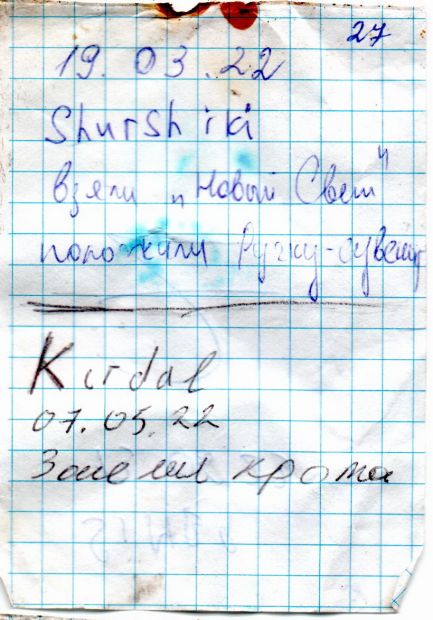 27
19.03.22
Shurshiki
взяли „Новый Свет"
положили ручку-сувенир
Kirdal
07.05.22
крота